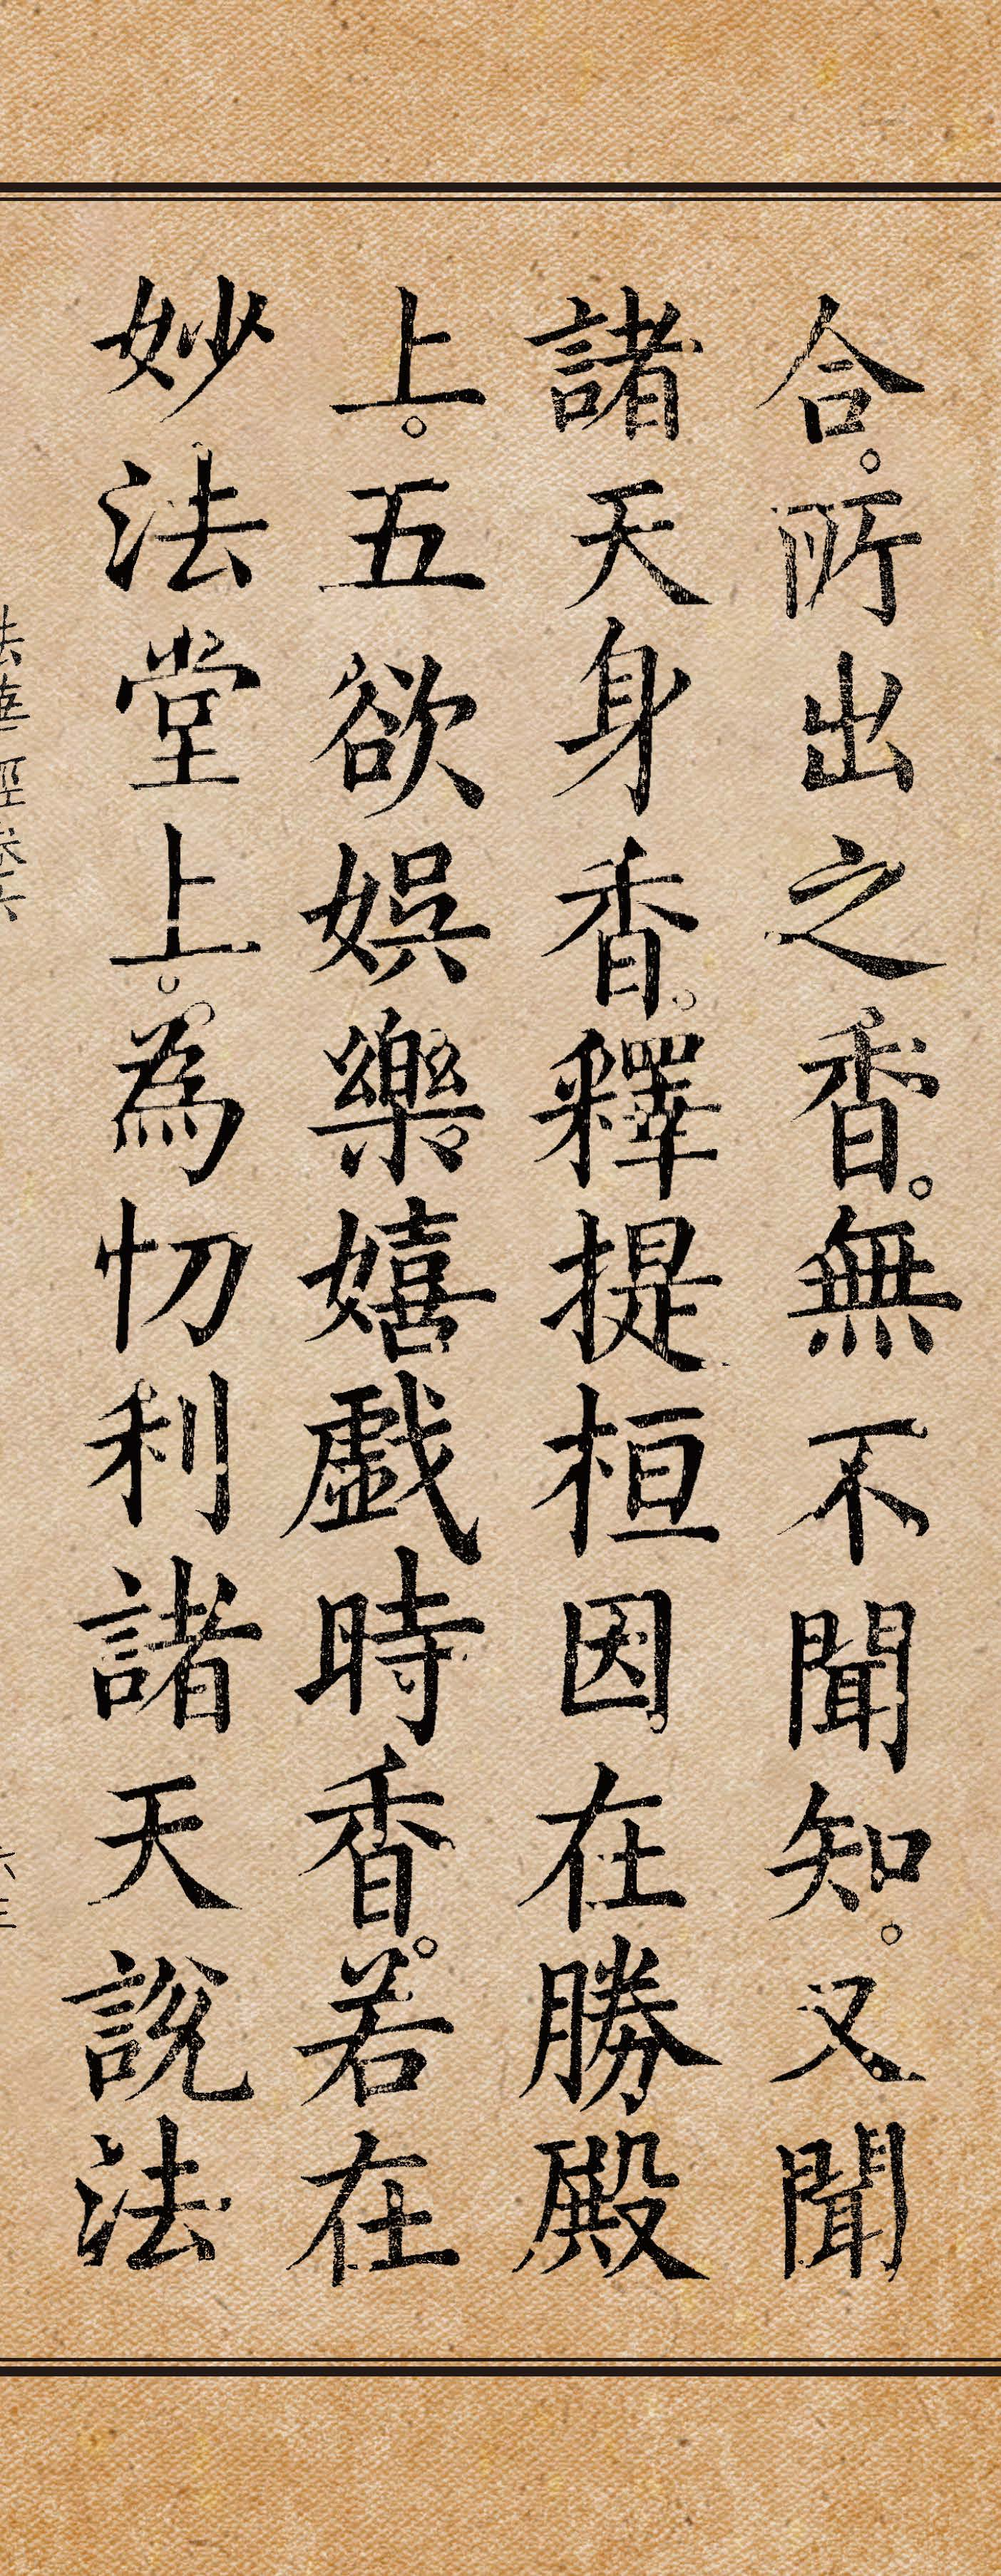 合。所出之香。無不聞知。又聞
諸天身香。釋提桓因。在勝殿
上。五欲娛樂嬉戱時香。若在
妙法堂上。為忉利諸天說法
法華經卷六